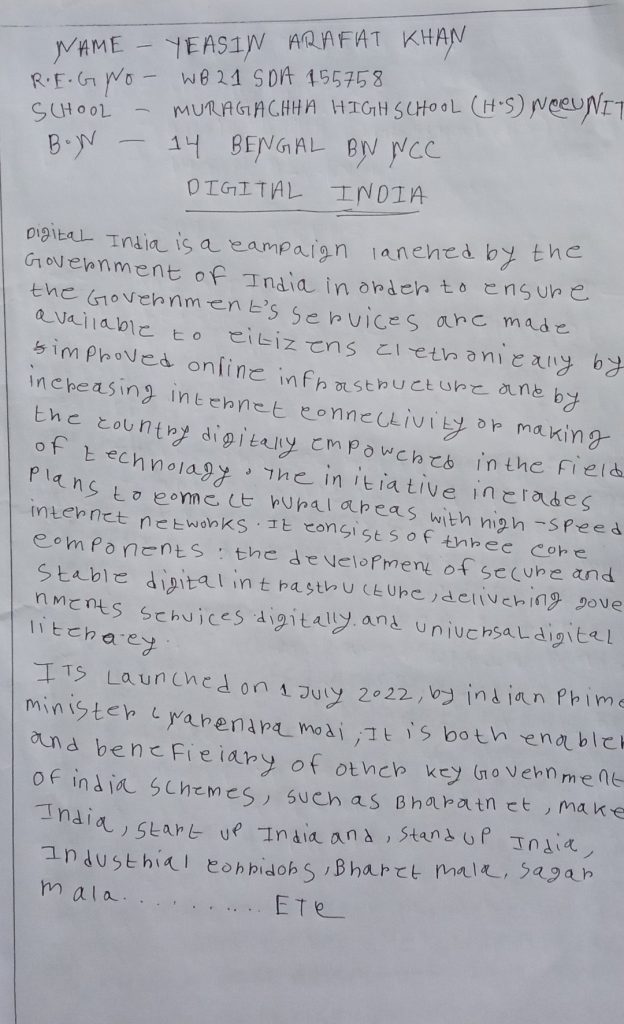 NAME - YEASIN ARAFAT KHAN
R.E.G NO - WB21 SDA 155758
SCHOOL - MURAGACHHA HIGH SCHOOL (H.S) NCCUNIT
B.N - 14 BENGAL BN NCC
DIGITAL INDIA
Digital India is a campaign lanched by the
Government of India in order to ensure
the Government's services are made
available to citizens electronically by
improved online infrastructure and by
increasing internet connectivity or making
the country digitally empowered in the field
of technolagy. The initiative inclades
Plans to connect rural areas with high-speed
internet networks. It consists of three core
components: the development of secure and
stable digital intrastructure, delivering gove
nments services digitally. and universal digital
literacy.
ITS Launched on 1 July 2022, by indian Prime
minister Narendra modi, It is both enabler
and beneficiary of other key Government
of india schemes, such as Bharatnet, make
India, start up India and, standup India,
Industrial corridors, Bharet mala, sagar
mala............ ETC